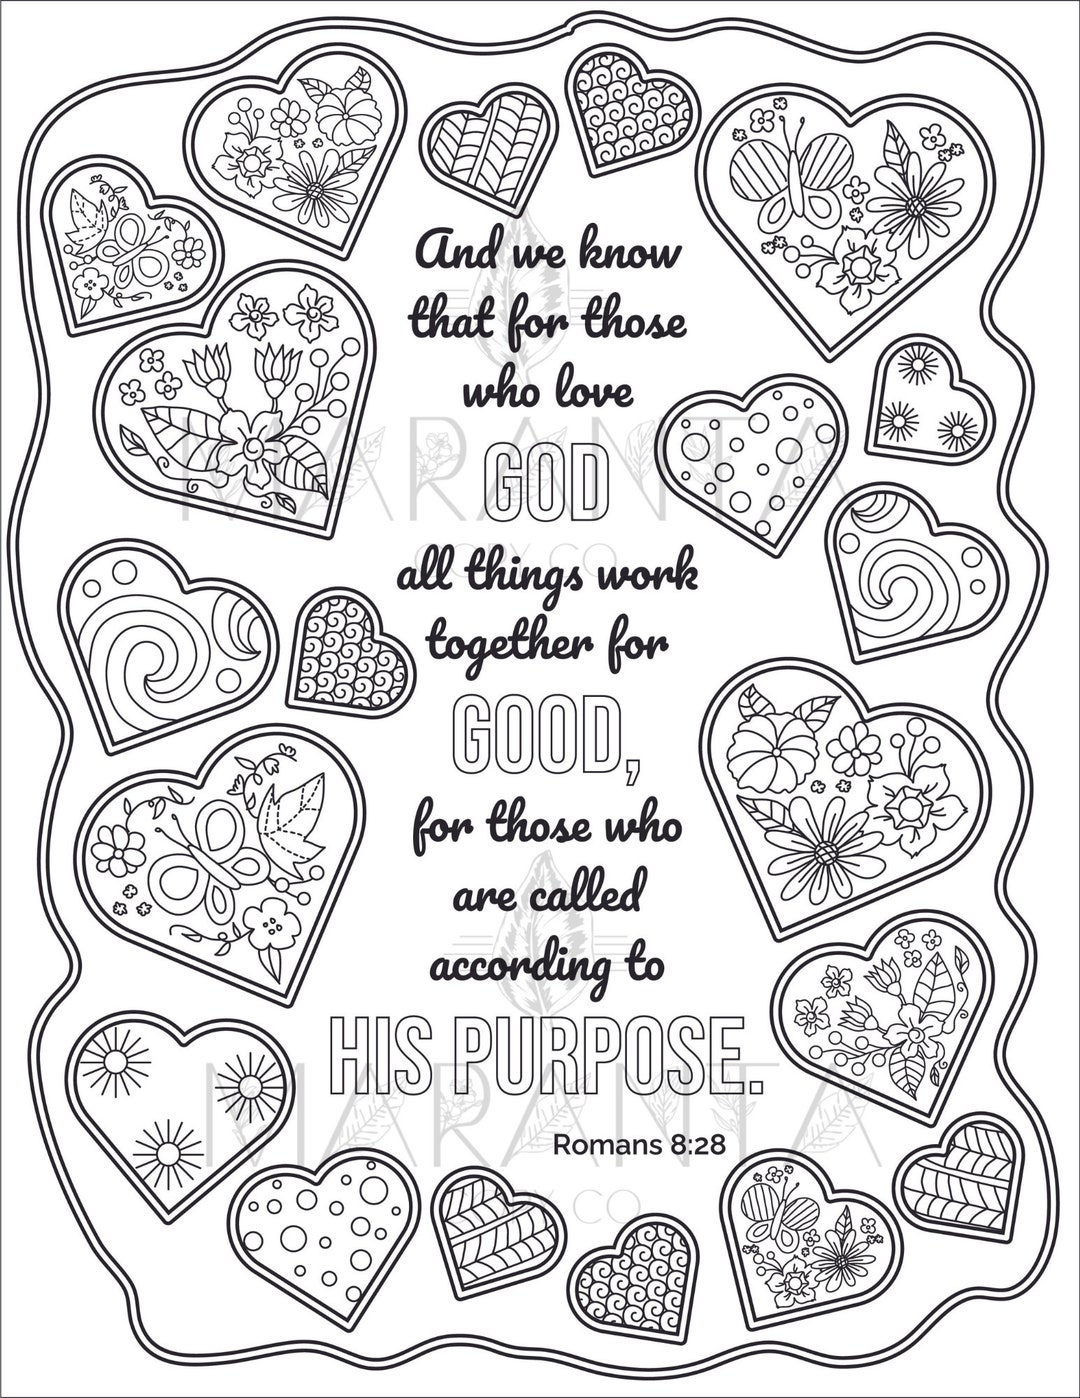 And we know
that for those
who love
GOD
MARANTA
COPY CO
all things work
together for
GOOD,
for those who
are called
according to
HIS PURPOSE.
MARANTA
Romans 8:28
COPY CO